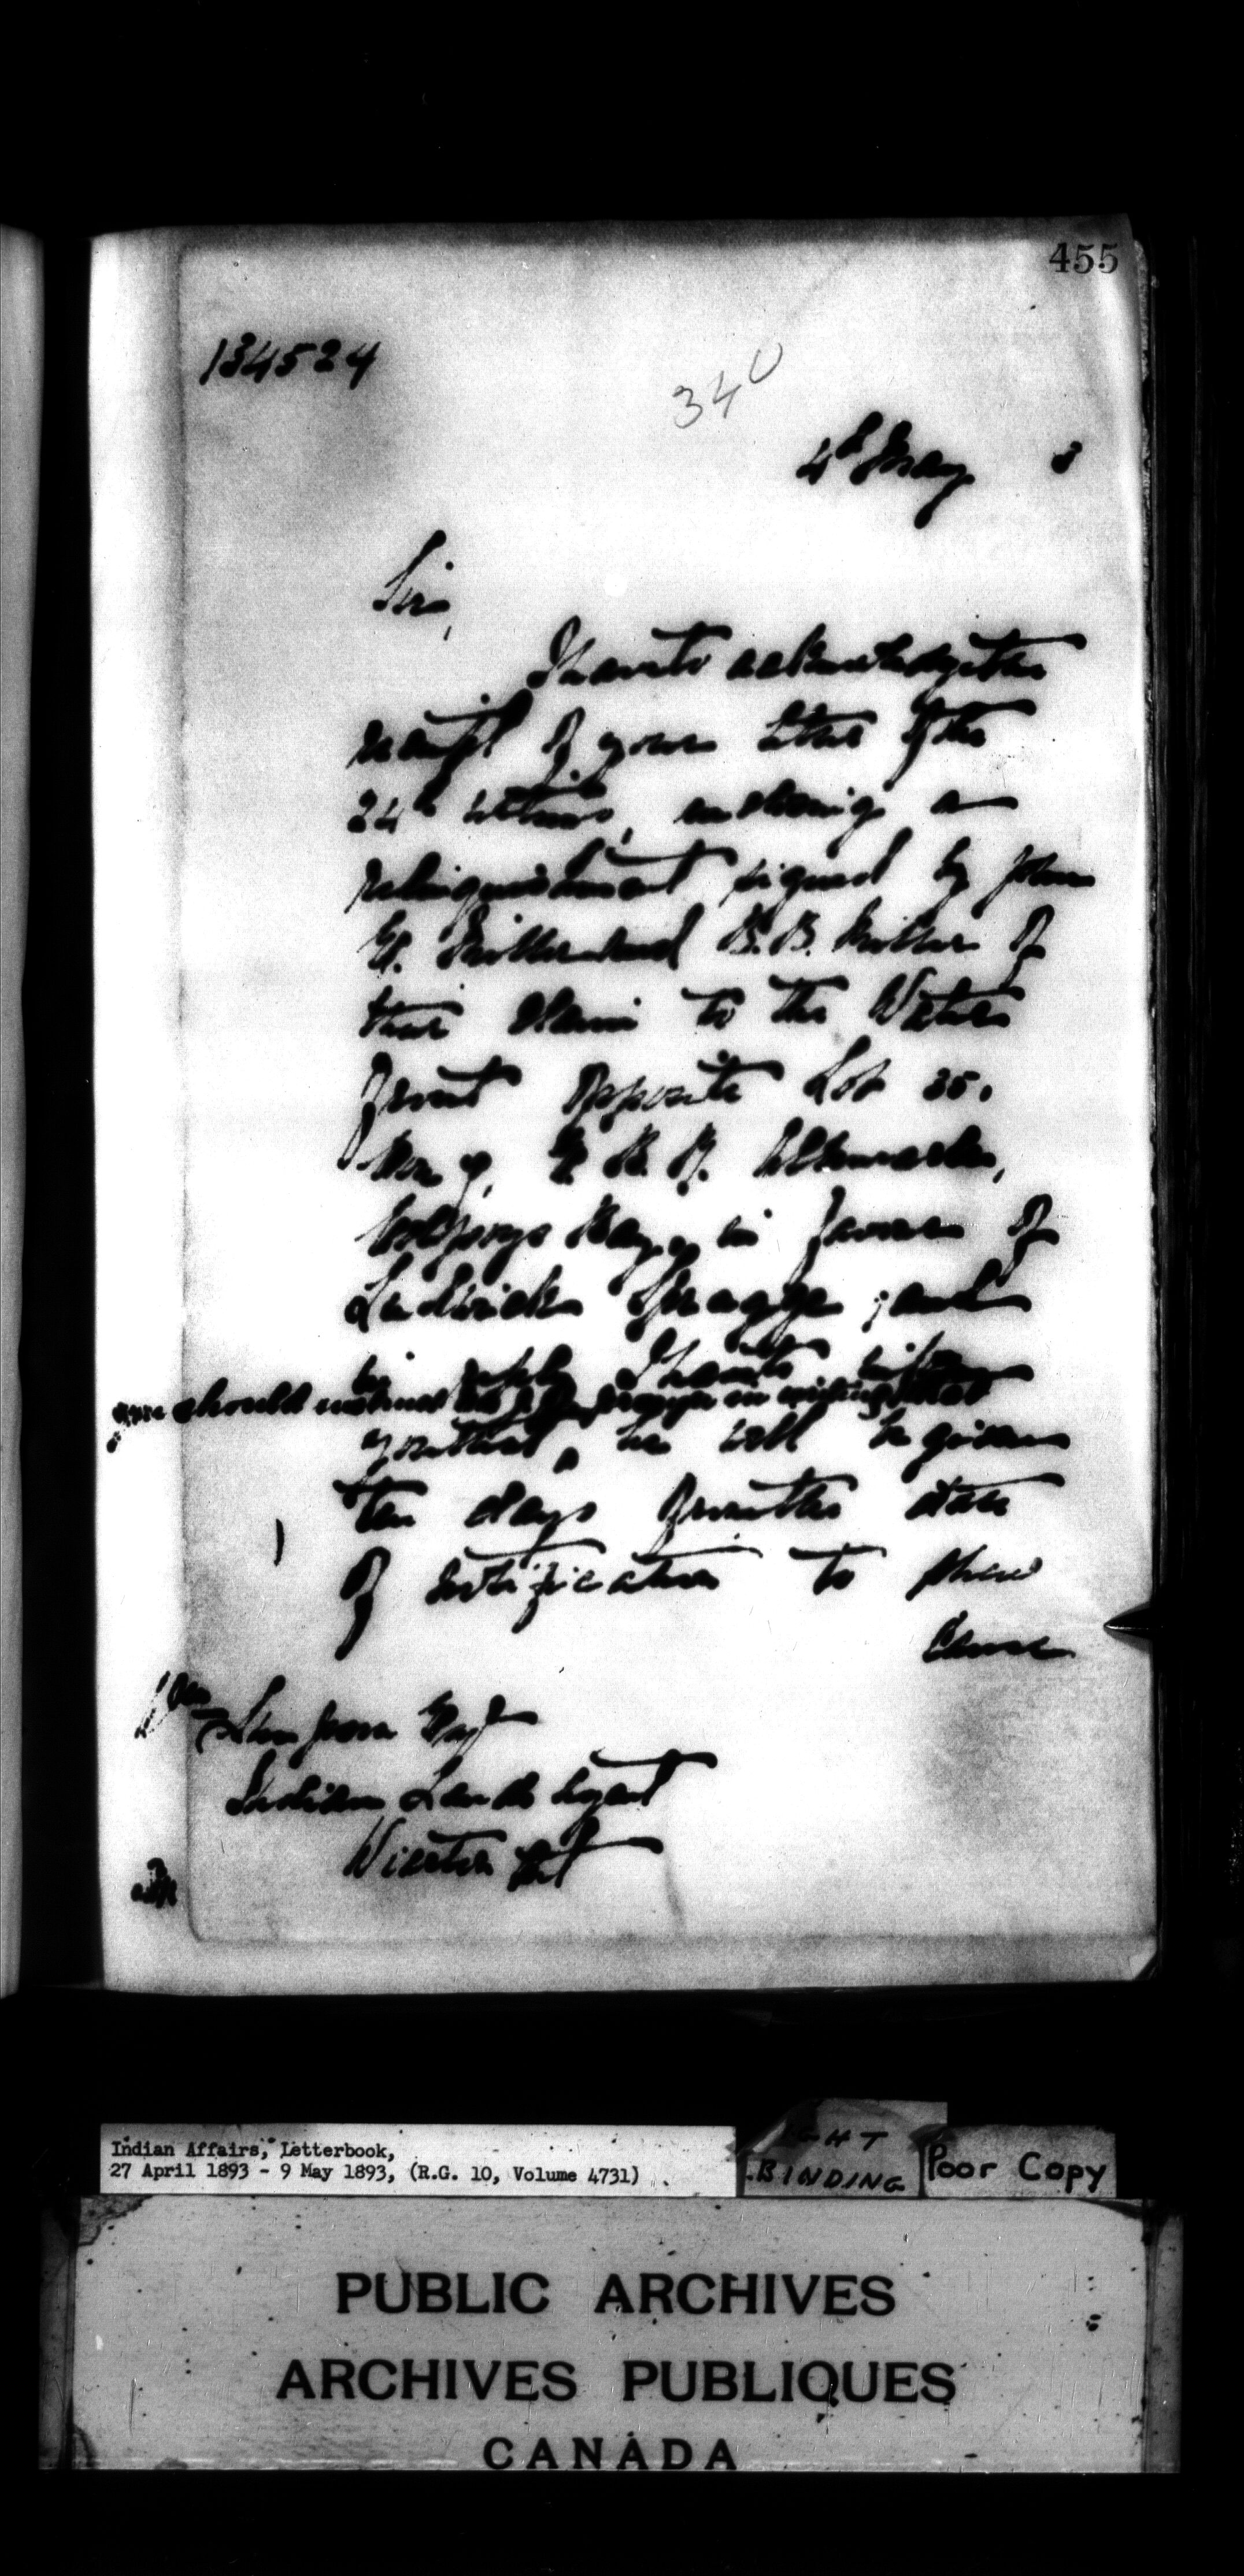 455
134524
340
4th May 3
Sir,
I have to acknowledge the
receipt of your letter of the
24th ultimo, enclosing a
relinquishment signed by John
G. Miller and B.B. Miller of
their claim to the Water
front opposite Lot 35.
Colpoys Bay, in favour of
Ludwick Spragge; and
in reply I have to inform
you should instruct in writing that
you that, he will be given
ten days from the date
of notification to shew
Cause
Wm Simpson Esq
Indian Land Agent
Wiarton Ont
Indian Affairs, Letterbook,
27 April 1893 - 9 May 1893, (R.G. 10, Volume 4731)
BINDING
Poor Copy
PUBLIC ARCHIVES
ARCHIVES PUBLIQUES
CANADA